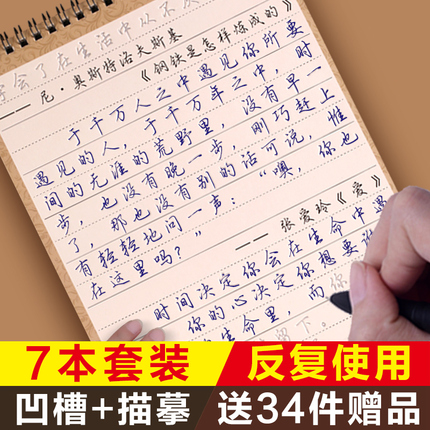 学会了在生活中从不
—— 尼·奥斯特洛夫斯基
《钢铁是怎样炼成的》
于千万人之中遇见你所要
遇见的人，于千万年之中，时
间的无涯的荒野里，没有早一
步，也没有晚一步，刚巧赶上
了，那也没有别的话可说，惟
有轻轻地问一声：“噢，你也
在这里吗？”
—— 张爱玲《爱》
时间决定你会在生命中遇
你的心决定你想要谁
生命里，而你
留下。
7本套装
反复使用
凹槽+描摹
送34件赠品